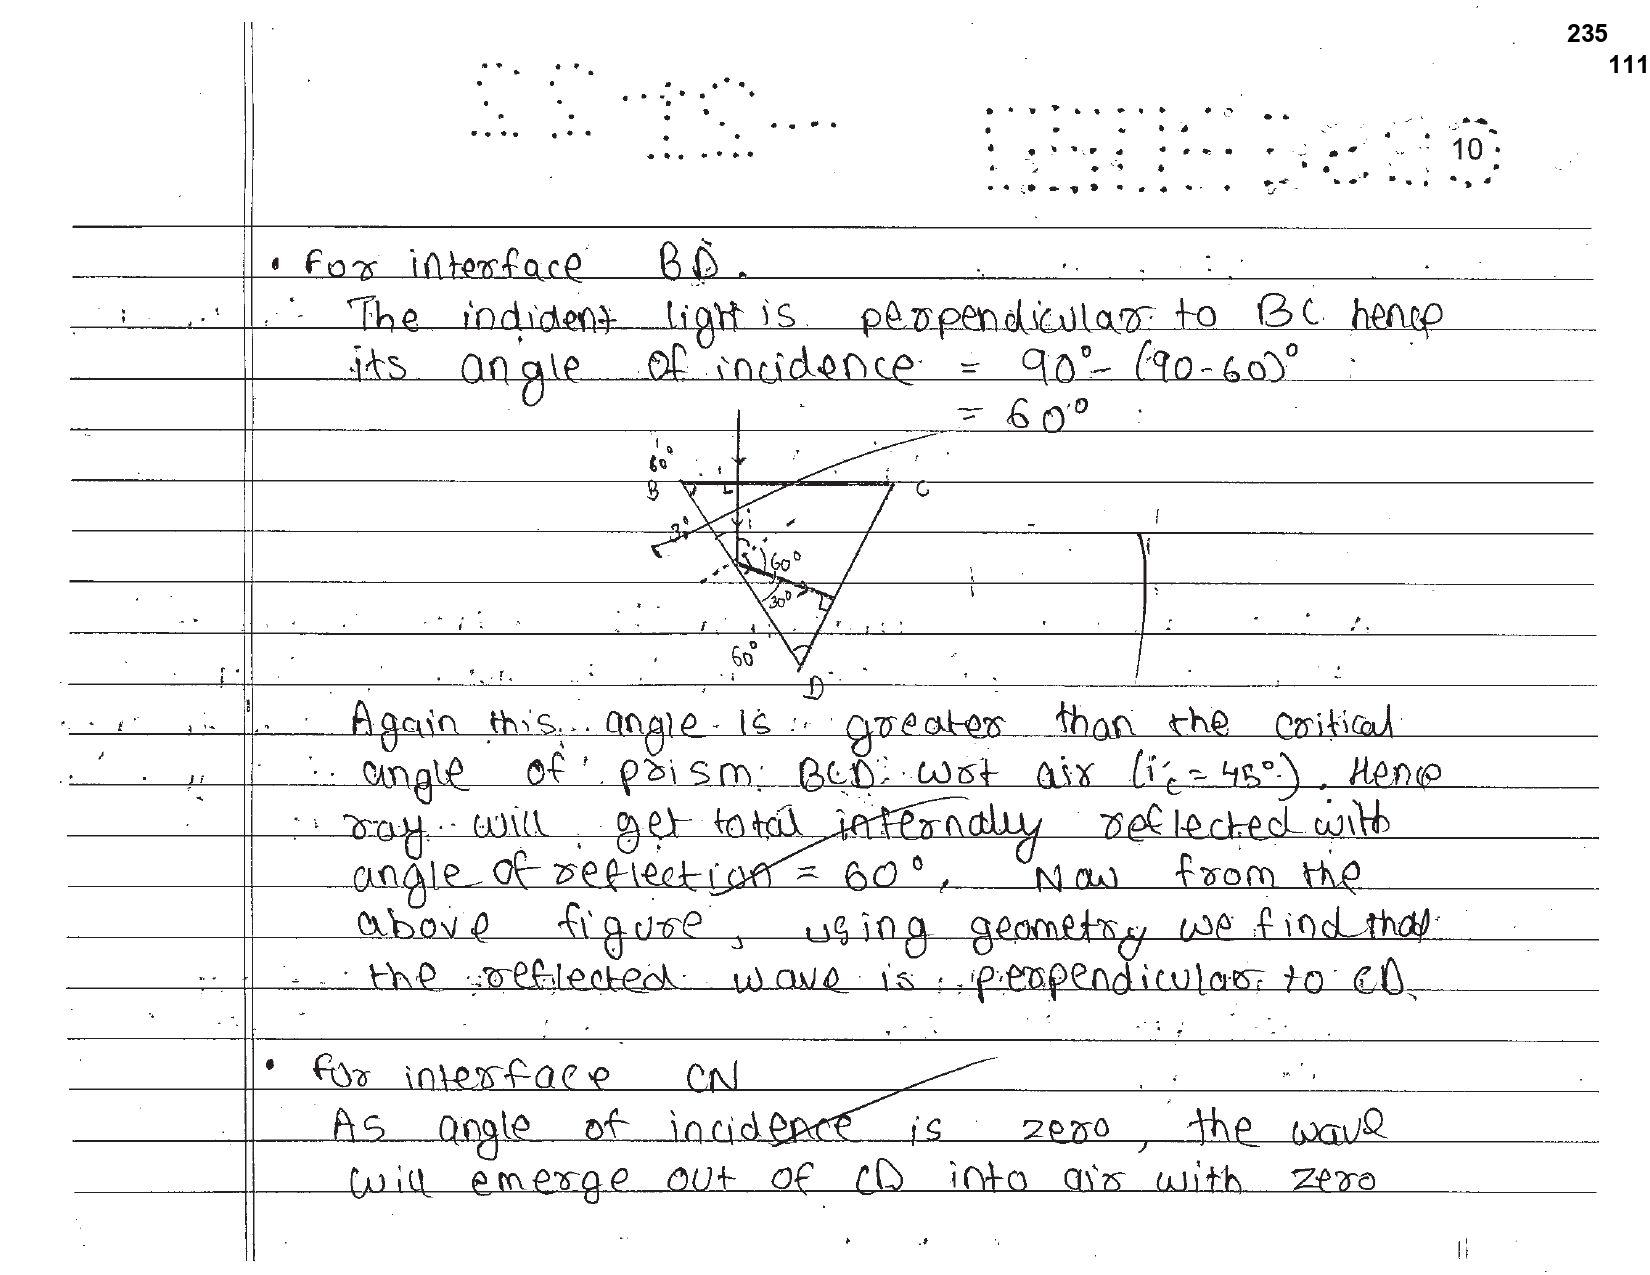 235
111
10
• For interface BD.
The indident light is perpendicular to BC hence
its angle of incidence = 90° - (90-60)°
= 60°
60°
B
C
30
i
60°
30°
60°
D
Again this angle is greater than the critical
angle of prism BCD wrt air (ic = 45°). Hence
ray will get total internally reflected with
angle of reflection = 60°. Now from the
above figure, using geometry we find that
the reflected wave is perpendicular to CD.
• for interface CN
As angle of incidence is zero, the wave
will emerge out of CD into air with zero